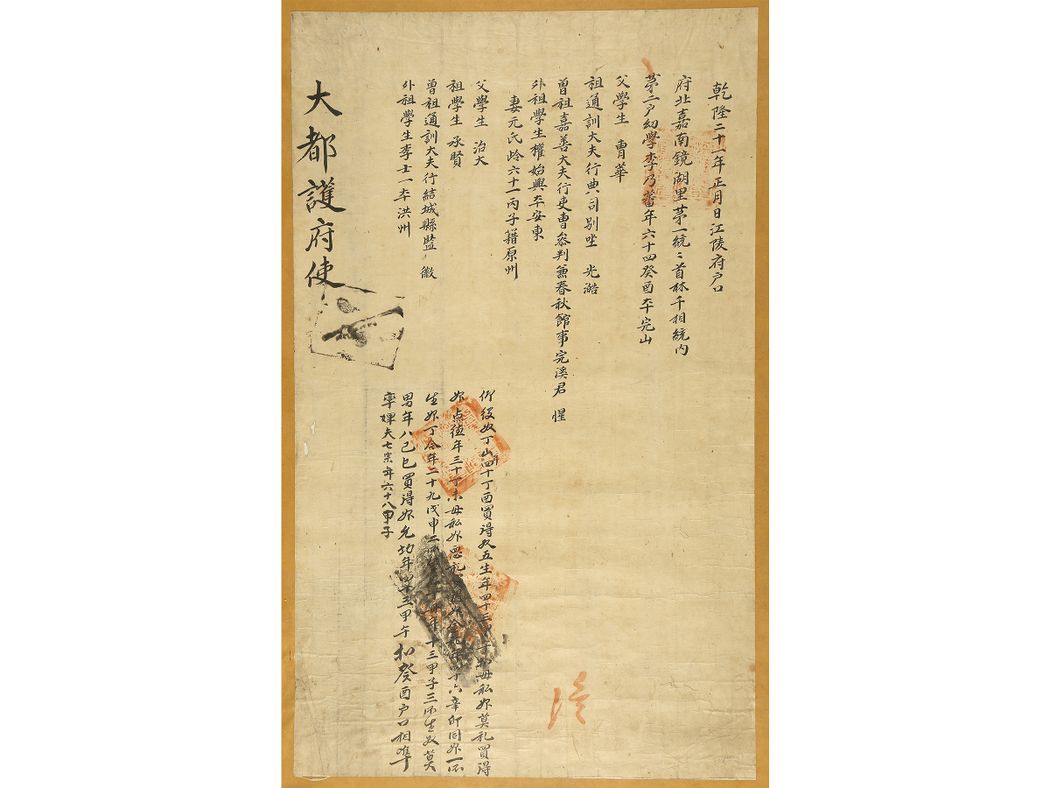 乾隆二十一年正月日江陵府戶口
府北嘉南鏡湖里苐一統〻首林千相統內
苐一戶幼學李乃蕃年六十四癸酉本完山
父學生 胄華
祖通訓大夫行典司別坐 光澔
曾祖嘉善大夫行吏曹叅判兼春秋館事完溪君 惺
外祖學生權始興本安東
妻元氏齡六十一丙子籍原州
父學生 治大
祖學生 承賢
曾祖通訓大夫行結城縣監 徽
外祖學生李士一本洪州
仰役奴丁山四十丁酉買得奴五生年四十三甲午母私婢莫礼買得
婢点德年三十丁未母私婢愛礼 六辛卯同婢一所
生婢丁今年二十九戊申二 年十三甲子三所生奴莫
男年八己巳買得婢允切年四十三甲午 和癸酉戶口相準
率婢夫七宗年六十八甲子
大都護府使